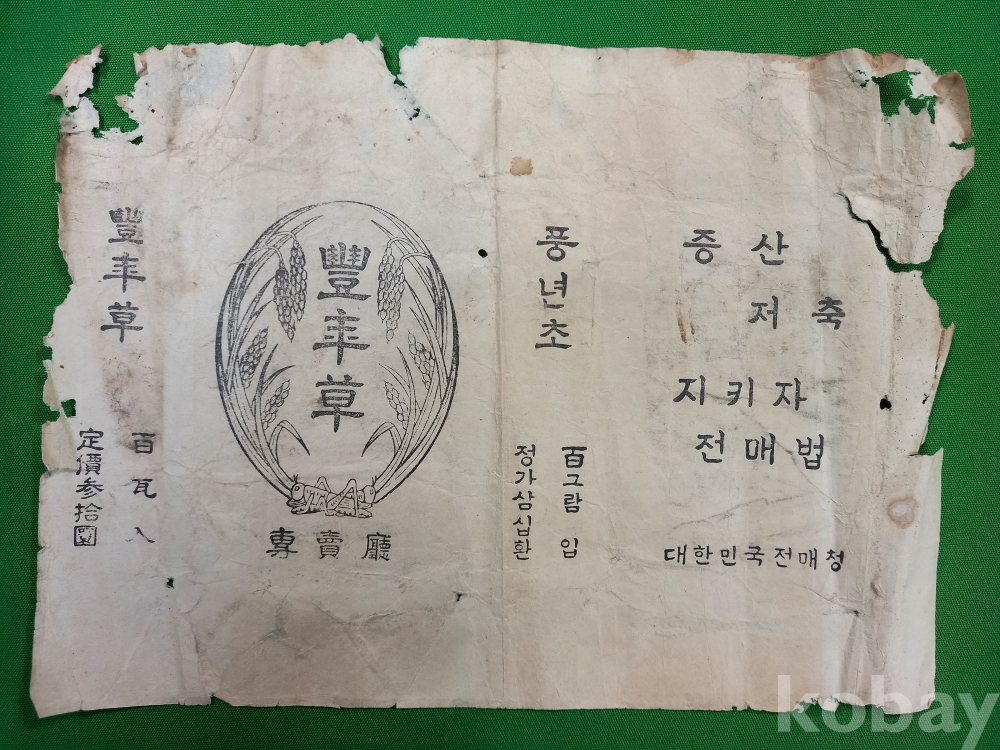 豐年草
百瓦入
定價参拾圜
豐年草
專賣廳
풍년초
百그람 입
정가삼십환
증산
저축
지키자
전매법
대한민국전매청
kobay